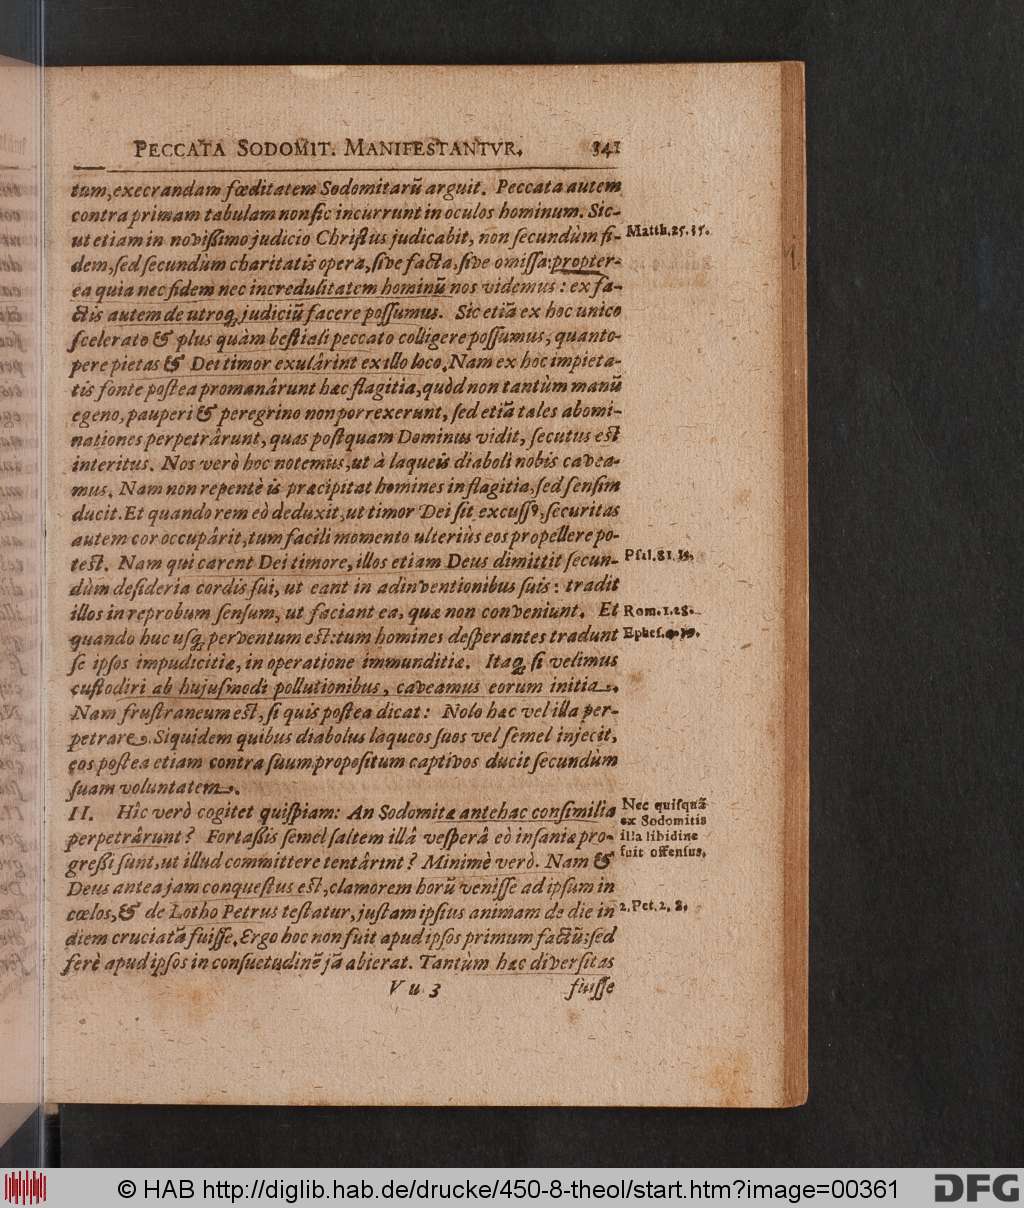 PECCATA SODOMIT. MANIFESTANTVR. 341
tum, execrandam fœditatem Sodomitarũ arguit. Peccata autem
contra primam tabulam non ſic incurrunt in oculos hominum. Sic-
ut etiam in noviſſimo judicio Chriſtus judicabit, non ſecundùm fi-
Matth. 25. 35.
dem, ſed ſecundùm charitatis opera, ſive facta, ſive omiſſa: propter-
ea quia nec fidem nec incredulitatem hominũ nos videmus: ex fa-
ctis autem de utroq; judiciũ facere poſſumus. Sic etiã ex hoc unico
ſcelerato & plus quàm beſtiali peccato colligere poſſumus, quanto-
pere pietas & Dei timor exulârint ex illo loco. Nam ex hoc impieta-
tis fonte poſtea promanârunt hæc flagitia, quòd non tantùm manũ
egeno, pauperi & peregrino non porrexerunt, ſed etiã tales abomi-
nationes perpetrârunt, quas poſtquam Dominus vidit, ſecutus eſt
interitus. Nos verò hoc notemus, ut à laqueis diaboli nobis cavea-
mus. Nam non repentè is præcipitat homines in flagitia, ſed ſenſim
ducit. Et quando rem eò deduxit, ut timor Dei ſit excuſſꝰ, ſecuritas
autem cor occupârit, tum facili momento ulteriùs eos propellere po-
teſt. Nam qui carent Dei timore, illos etiam Deus dimittit ſecun-
Pſal. 81. 13.
dùm deſideria cordis ſui, ut eant in adinventionibus ſuis: tradit
illos in reprobum ſenſum, ut faciant ea, quæ non conveniunt. Et
Rom. 1. 28.
quando huc uſq; perventum eſt: tum homines deſperantes tradunt
Epheſ. 4. 19.
ſe ipſos impudicitiæ, in operatione immunditiæ. Itaq; ſi velimus
cuſtodiri ab hujuſmodi pollutionibus, caveamus eorum initia.
Nam fruſtraneum eſt, ſi quis poſtea dicat: Nolo hæc vel illa per-
petrare. Siquidem quibus diabolus laqueos ſuos vel ſemel injecit,
eos poſtea etiam contra ſuum propoſitum captivos ducit ſecundùm
ſuam voluntatem.
II. Hîc verò cogitet quiſpiam: An Sodomitæ antehac conſimilia
perpetrârunt? Fortaßis ſemel ſaltem illâ veſperâ eò inſaniæ pro-
greßi ſunt, ut illud committere tentârint? Minimè verò. Nam &
Nec quiſquã
ex Sodomitis
illa libidine
fuit offenſus.
Deus antea jam conqueſtus eſt, clamorem horũ veniſſe ad ipſum in
cœlos, & de Lotho Petrus teſtatur, juſtam ipſius animam de die in
2. Pet. 2. 8.
diem cruciatã fuiſſe. Ergo hoc non fuit apud ipſos primum factũ; ſed
ferè apud ipſos in conſuetudinẽ jã abierat. Tantùm hæc diverſitas
V u 3 fuiſſe
© HAB http://diglib.hab.de/drucke/450-8-theol/start.htm?image=00361
DFG